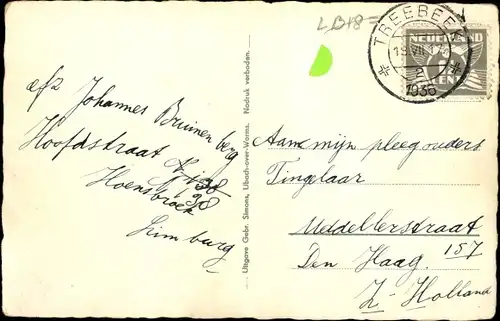 L, B+8 =
TREEBEEK
19.VII.17
2
1936
NEDERLAND
CENT
afz Johannes Bruinenberg
Hoofdstraat No 138
138
Hoensbroek
Limburg
Uitgave Gebr. Simons, Ubach-over-Worms. Nadruk verboden.
Aan mijn pleegouders
Tingelaar
Weddellerstraat
157
Den Haag
Z-Holland